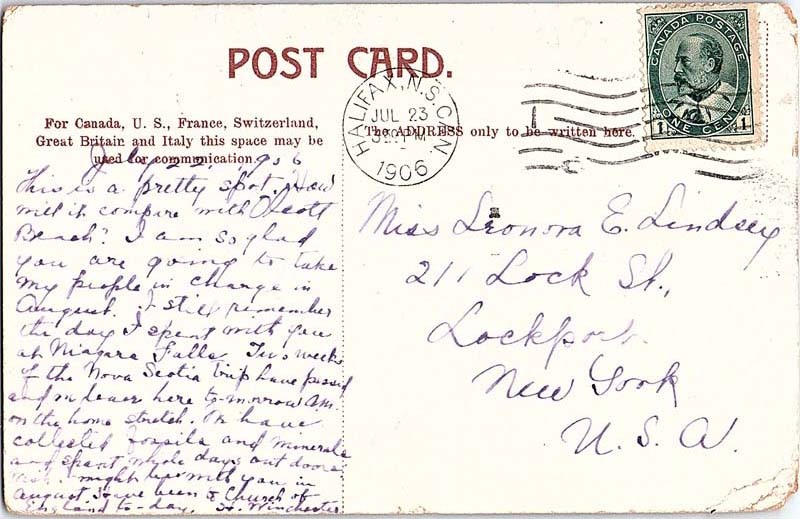 POST CARD.
For Canada, U. S., France, Switzerland,
Great Britain and Italy this space may be
used for communication.
The ADDRESS only to be written here.
HALIFAX, N.S. CAN
JUL 23
PM
1906
CANADA POSTAGE
ONE CENT
1 1
July 22 1906
This is a pretty spot. How
will it compare with Olcott
Beach? I am so glad
you are going to take
my people in charge in
August. I still remember
the day I spent with you
at Niagara Falls. Two weeks
of the Nova Scotia trip have passed
and we leave here to-morrow A.M.
on the home stretch. We have
collected fossils and minerals
and spent whole days out doors
Wish I might be with you in
August. Have been to Church of
England to-day. Winchester
Miss Leonora E. Lindsey
211 Lock St.,
Lockport
New York
U. S. A.